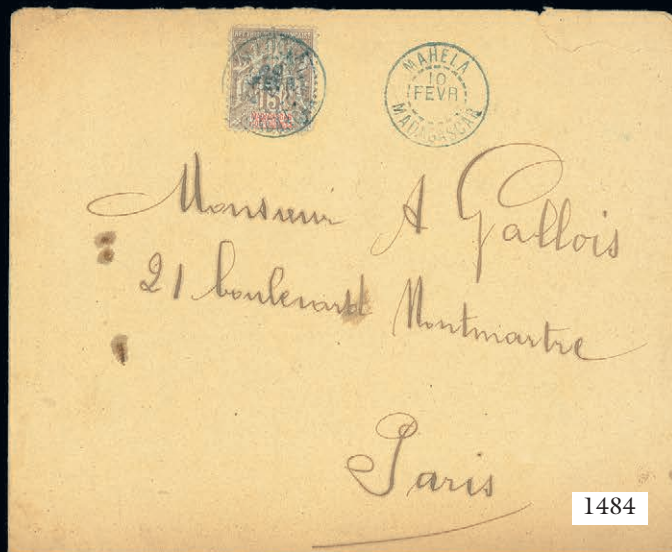 15
MAHELA
10
FEVR
MADAGASCAR
Monsieur A Gallois
21 boulevard Montmartre
Paris
1484